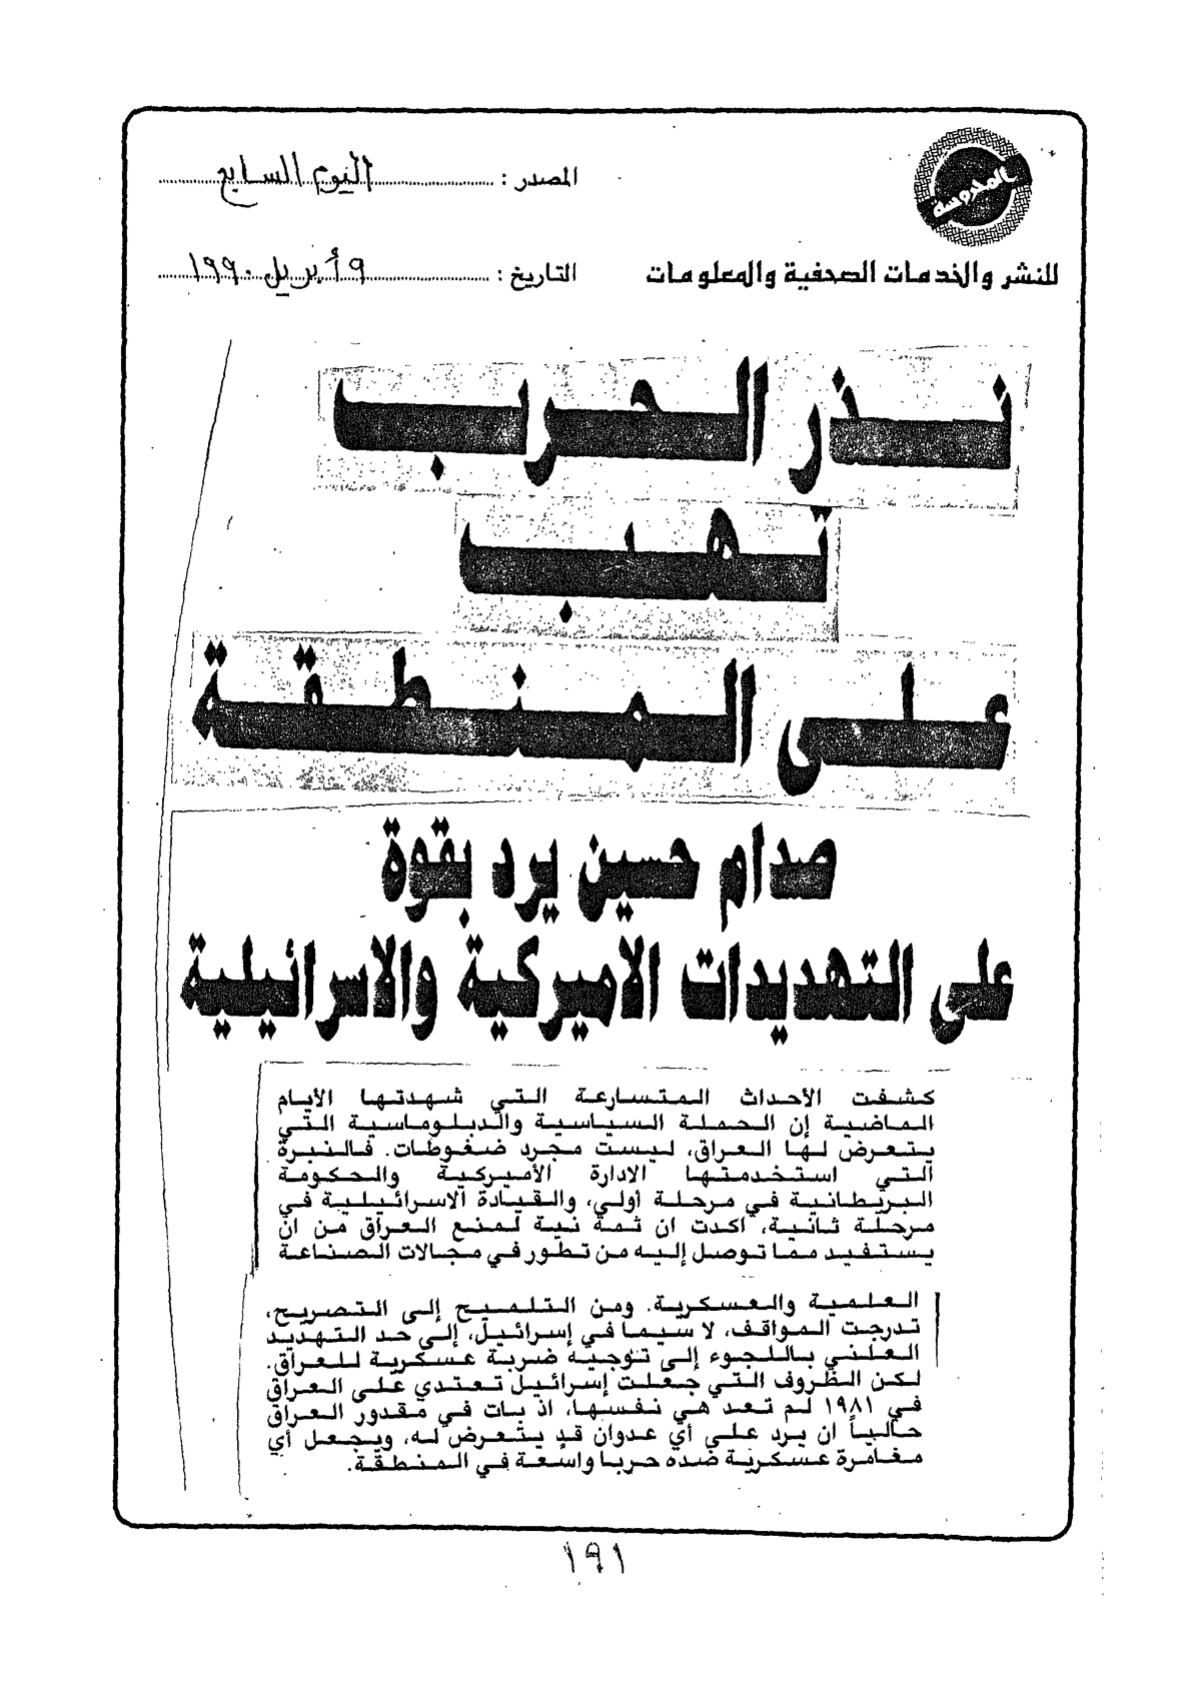 المحروسة
للنشر والخدمات الصحفية والمعلومات
المصدر : اليوم السابع
التاريخ : ٩ أبريل ١٩٩٠
نذر الحرب
تهب
على المنطقة
صدام حسين يرد بقوة
على التهديدات الاميركية والاسرائيلية
كشفت الأحداث المتسارعة التي شهدتها الأيام
الماضية إن الحملة السياسية والدبلوماسية التي
يتعرض لها العراق، ليست مجرد ضغوطات. فالنبرة
التي استخدمتها الادارة الأميركية والحكومة
البريطانية في مرحلة أولى، والقيادة الاسرائيلية في
مرحلة ثانية، اكدت ان ثمة نية لمنع العراق من ان
يستفيد مما توصل إليه من تطور في مجالات الصناعة
العلمية والعسكرية. ومن التلميح إلى التصريح،
تدرجت المواقف، لا سيما في إسرائيل، إلى حد التهديد
العلني باللجوء إلى توجيه ضربة عسكرية للعراق.
لكن الظروف التي جعلت إسرائيل تعتدي على العراق
في ١٩٨١ لم تعد هي نفسها، اذ بات في مقدور العراق
حالياً ان يرد على أي عدوان قد يتعرض له، ويجعل أي
مغامرة عسكرية ضده حربا واسعة في المنطقة.
١٩١